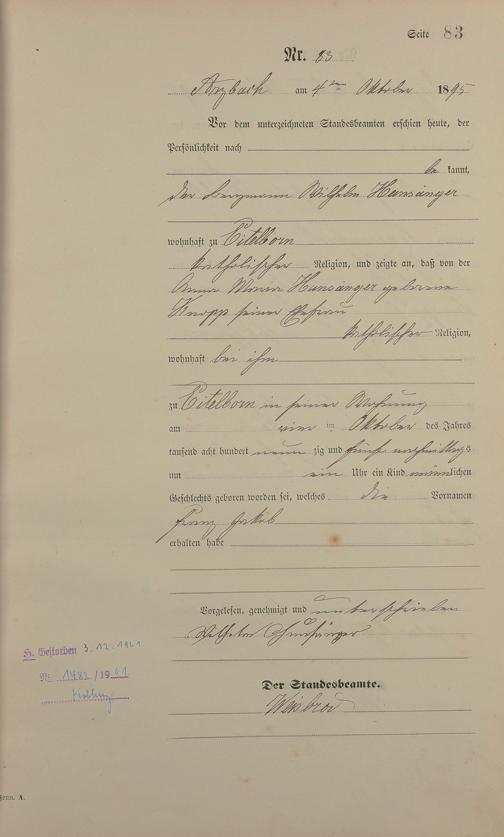 Seite 83
Nr. 83
Arzbach am 4ten Oktober 1895
Vor dem unterzeichneten Standesbeamten erschien heute, der
Persönlichkeit nach
be kannt,
der Bergmann Wilhelm Hunsänger
wohnhaft zu Eitelborn
katholischer Religion, und zeigte an, daß von der
Anna Maria Hunsänger geborene
Knopp seiner Ehefrau
katholischer Religion,
wohnhaft bei ihm
zu Eitelborn in seiner Wohnung
am vier ten Oktober des Jahres
tausend acht hundert neun zig und fünf nachmittags
um ein Uhr ein Kind männlichen
Geschlechts geboren worden sei, welches die Vornamen
Franz Jakob
erhalten habe
Vorgelesen, genehmigt und unterschrieben
Wilhelm Hunsänger
H. Gestorben 3.12.1961
Nr. 1482/1961
Koblenz
Der Standesbeamte.
Weisbrod
Form. A.